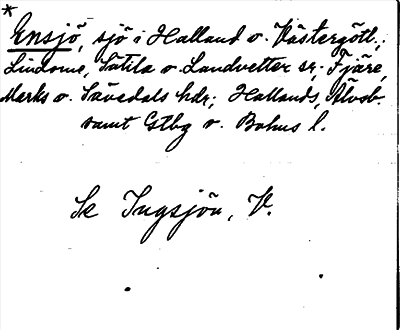 * Ensjö, sjö i Halland o. Västergötl.;
Lindome, Sätila o. Landvetter sr; Fjäre,
Marks o. Sävedals hdr; Hallands, Älvsb.
samt Gtbg o. Bohus l.
Se Ingsjön, V.